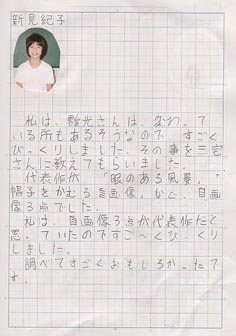 新見紀子
私は、数光さんは、変わって
いる所もあるそうなので、すごく
びっくりしました。その事を三宅
さんに教えてもらいました。
代表作が「眼のある風景」
帽子をかむる自画像、など、自画
像3点でした。
私は、自画像3点が代表作だと
思っていたのですご〜くびっくり
しました。
調べてすごくおもしろかったで
す。